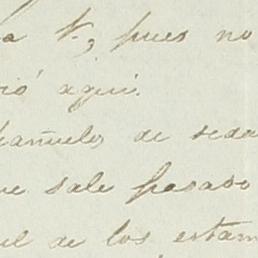 a t., pues no
ió aqui.
pañuelo, de seda
ue sale pasado
ul de los estam